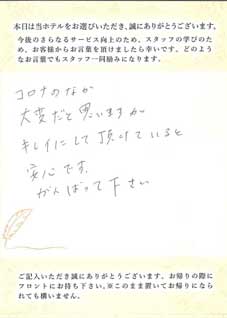 本日は当ホテルをお選びいただき、誠にありがとうございます。
今後のさらなるサービス向上のため、スタッフの学びのた
め、お客様からお言葉を頂けましたら幸いです、どのよう
なお言葉でもスタッフ一同励みになります。
コロナのなか
大変だと思いますが
キレイにして頂けていると
安心です。
がんばって下さい
ご記入いただき誠にありがとうございます、お帰りの際に
フロントにお持ち下さい。※このまま置いてお帰りになら
れても構いません。